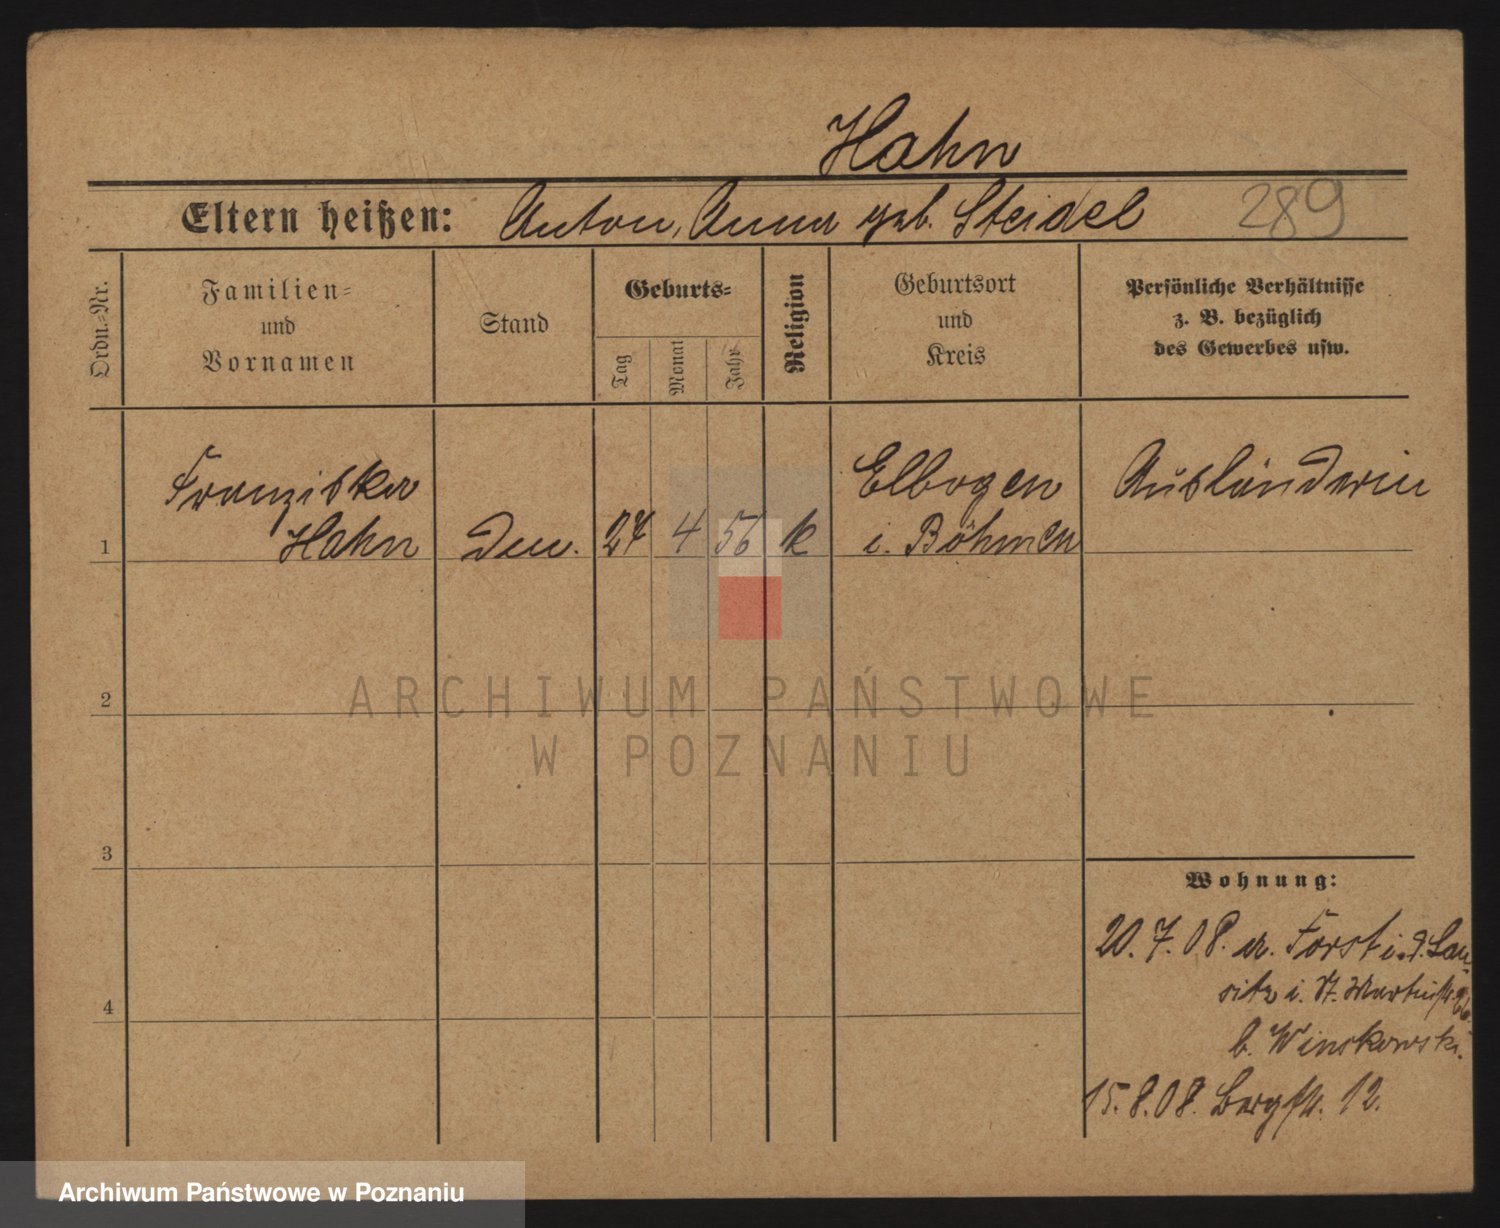 Hahn
Eltern heißen: Anton, Anna geb. Steidel 289
Ordn.=Nr.
Familien=
und
Vornamen
Stand
Geburts=
Tag
Monat
Jahr
Religion
Geburtsort
und
Kreis
Persönliche Verhältnisse
z. B. bezüglich
des Gewerbes usw.
Franziska Elbogen Ausländerin
1 Hahn 27 4 56 k i. Böhmen
2
ARCHIWUM PAŃSTWOWE
W POZNANIU
3
Wohnung:
20.7.08. a. Forst i. d. Lau-
4 sitz i. St. Martinstr.
b. Winskowski.
15.8.08. Bergstr. 12.
Archiwum Państwowe w Poznaniu